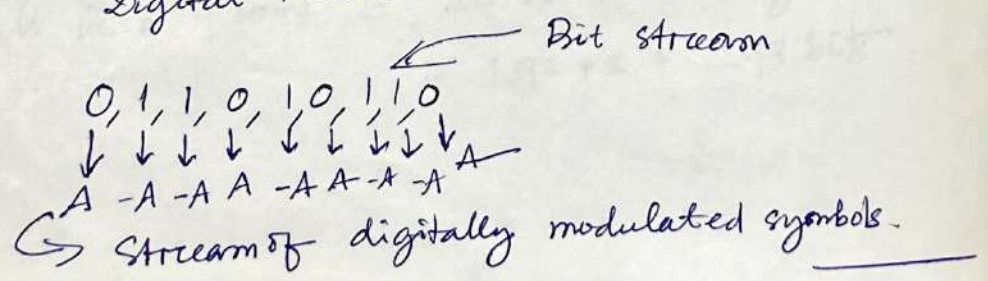 Digital
Bit stream
0, 1, 1, 0, 1, 0, 1, 1, 0
A -A -A A -A A -A -A A
Stream of digitally modulated symbols.